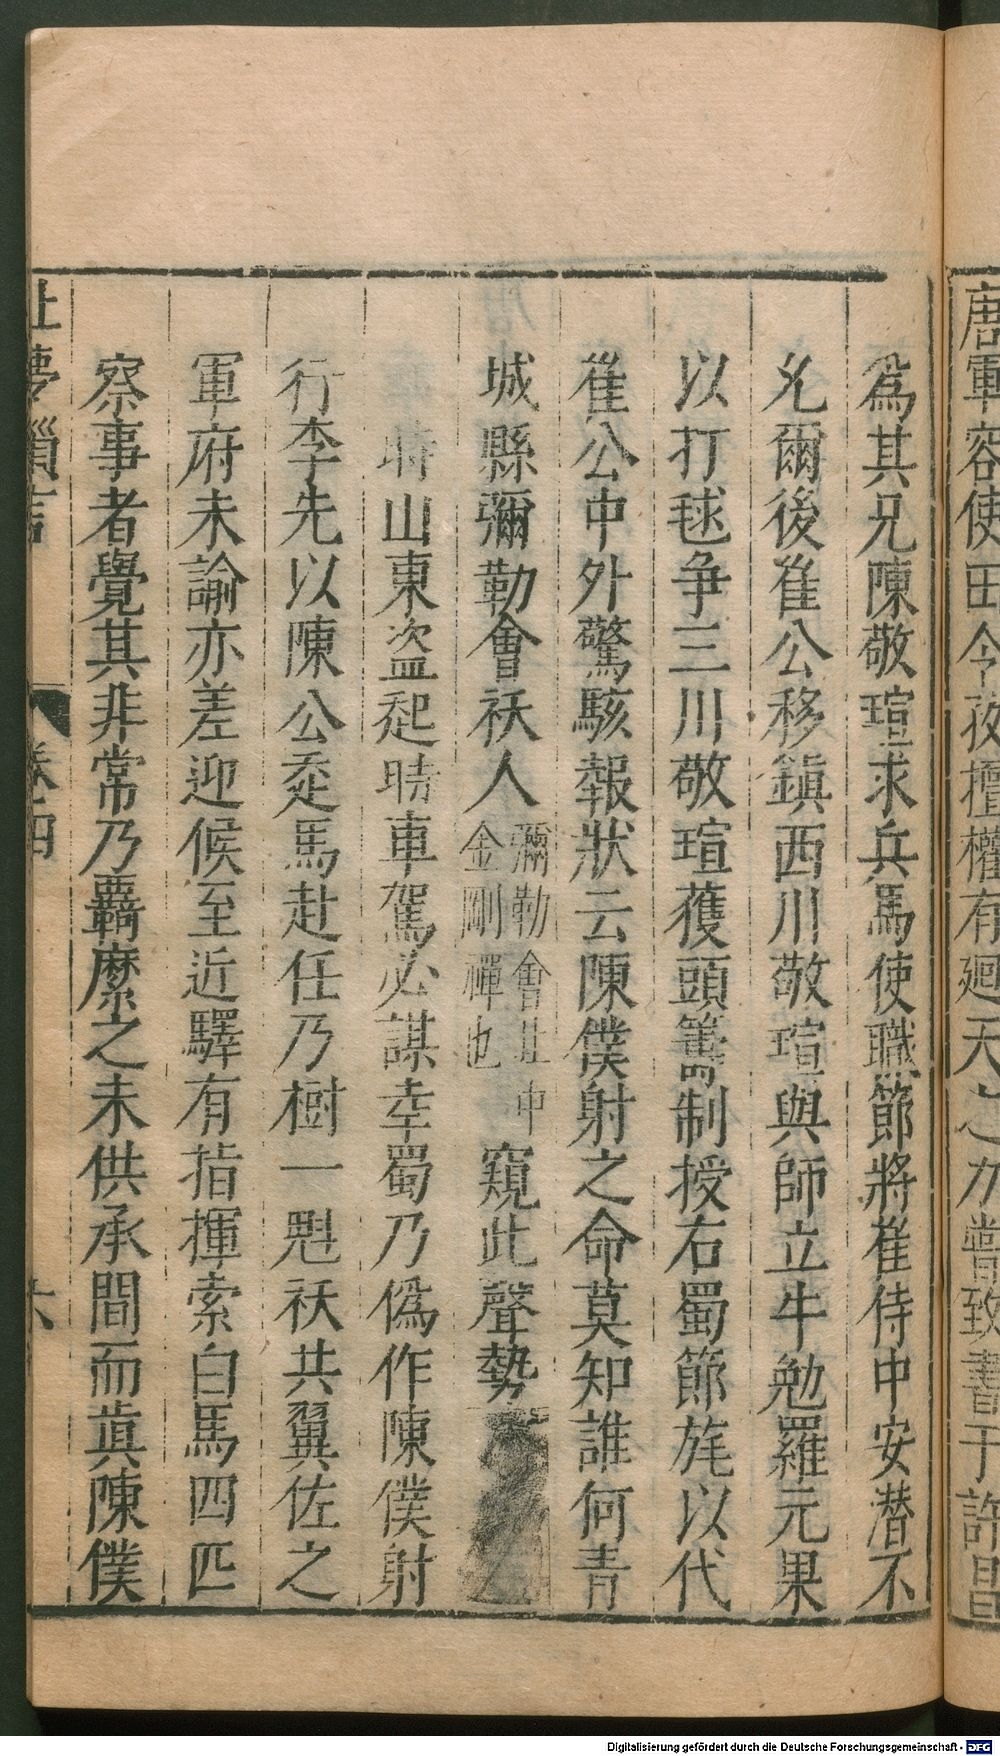 唐軍容使田令孜擅權有廻天之力嘗致書于許昌
爲其兄陳敬瑄求兵馬使職節將崔侍中安潛不
允爾後崔公移鎭西川敬瑄與師立牛勉羅元杲
以打毬爭三川敬瑄獲頭籌制授右蜀節旄以代
崔公中外驚駭報狀云陳僕射之命莫知誰何青
城縣彌勒會祅人
彌勒會北中
金剛禪也
窺此聲勢
時山東盜起時車駕必謀幸蜀乃僞作陳僕射
行李先以陳公走馬赴任乃樹一魁祅共翼佐之
軍府未諭亦差迎候至近驛有指揮索白馬四匹
察事者覺其非常乃羈縻之未供承間而眞陳僕
北夢瑣言
卷四
六
Digitalisierung gefördert durch die Deutsche Forschungsgemeinschaft - DFG